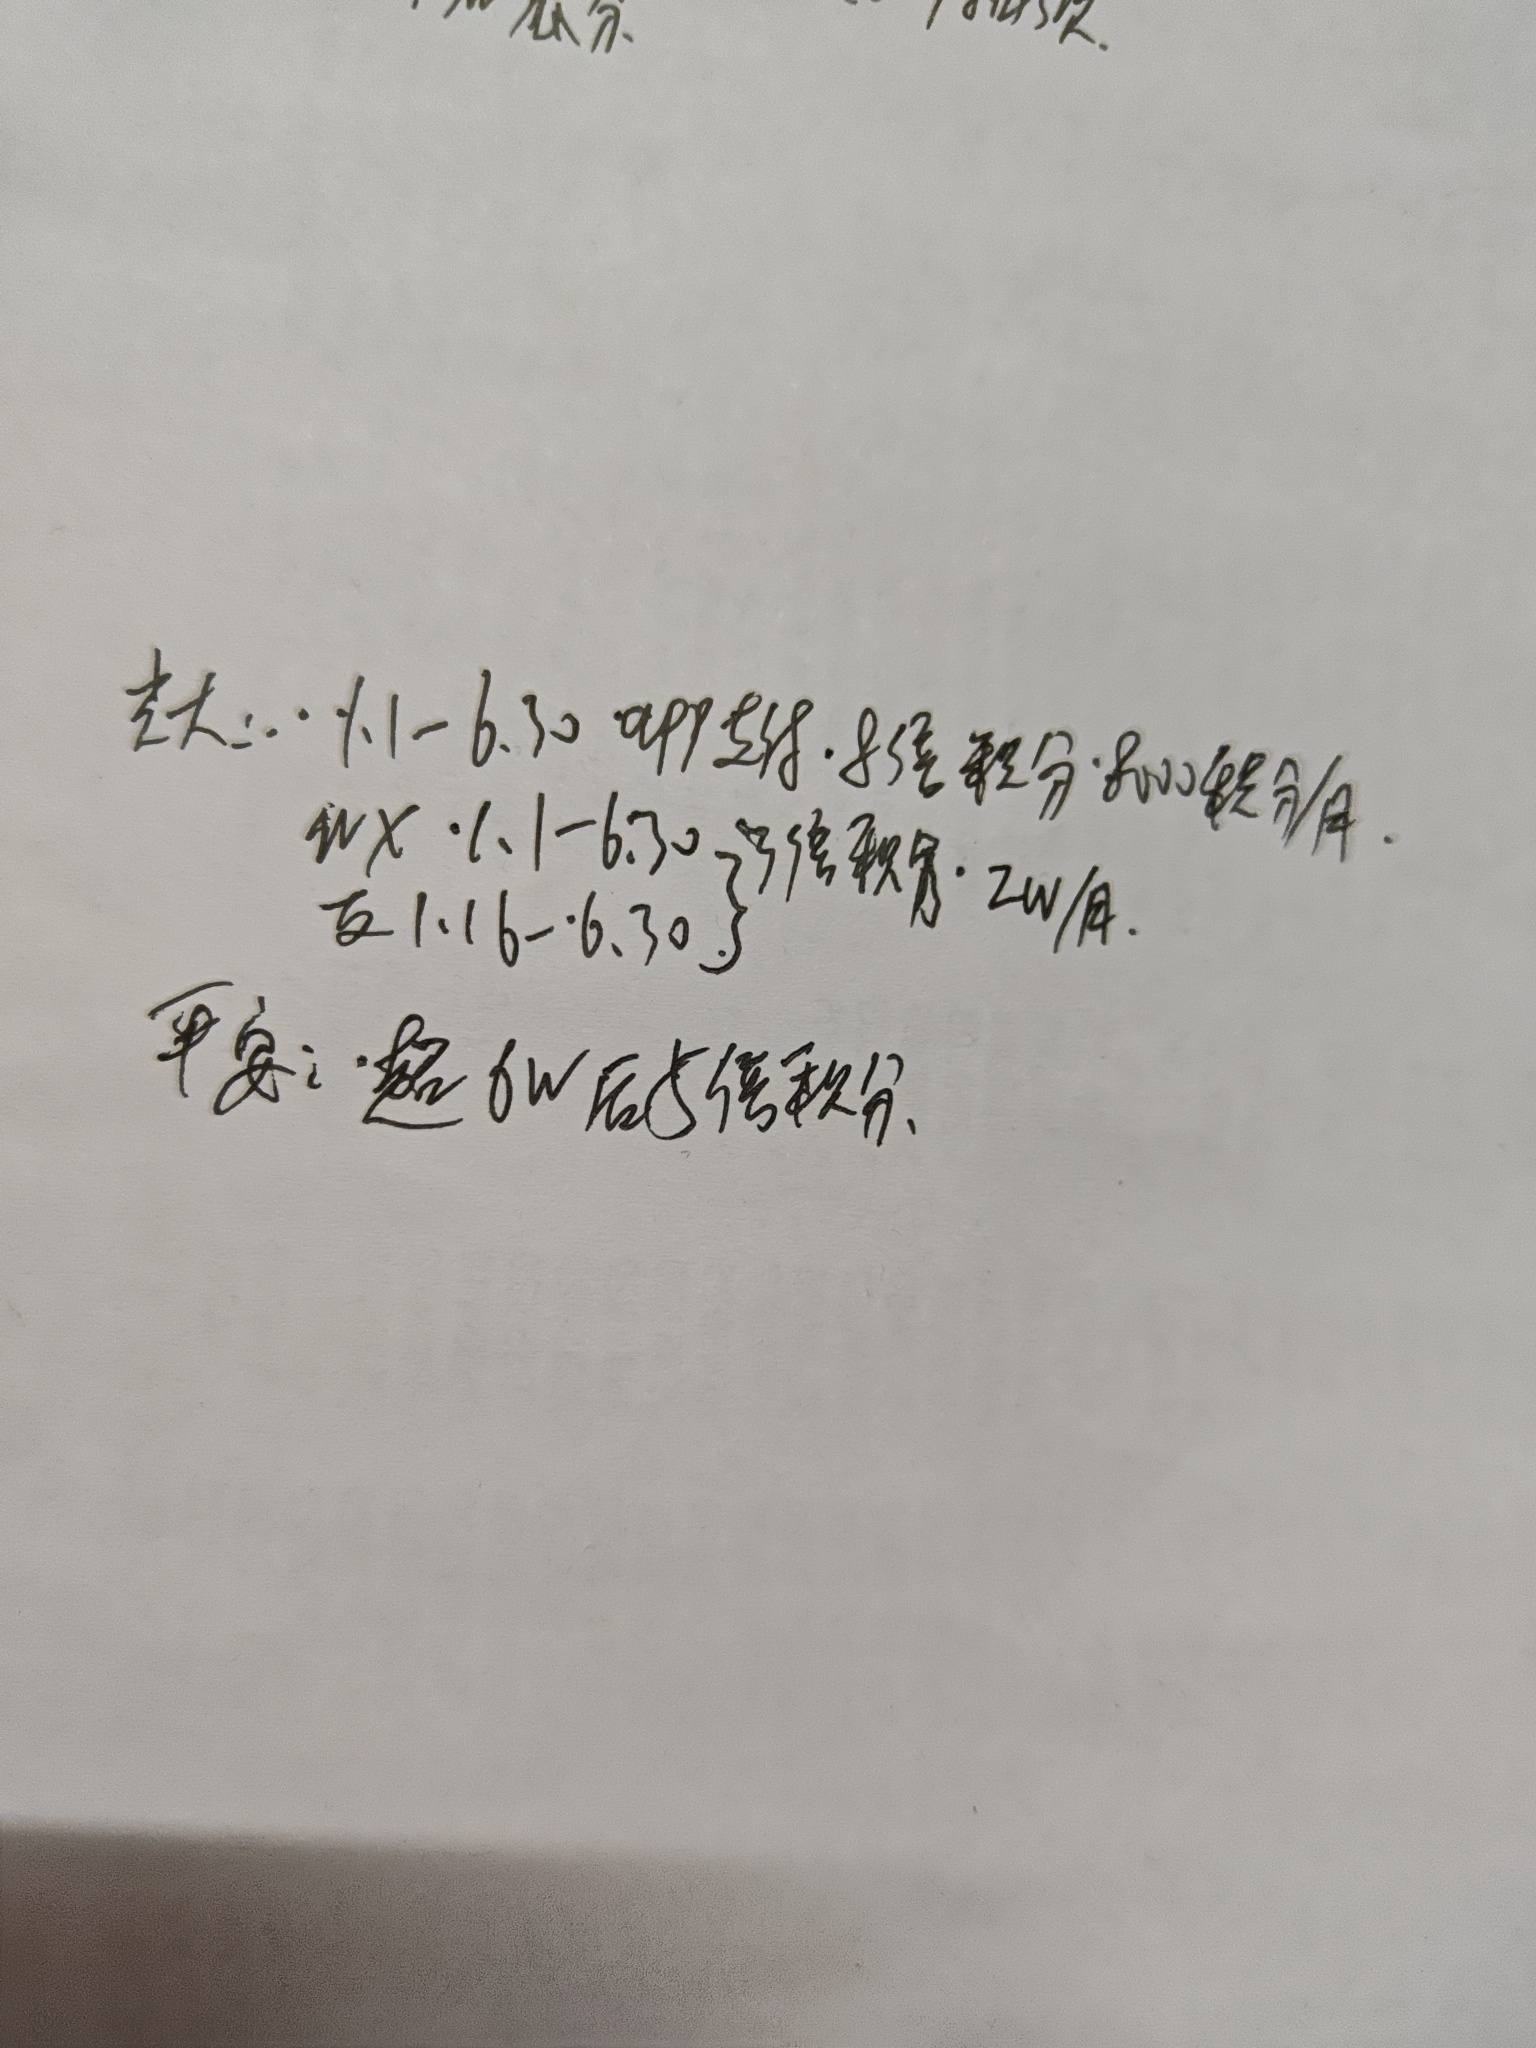 积分.
光大: · 1.1-6.30 app支付 · 8倍积分 · 8000积分/月.
WX · 1.1-6.30
支 1.16-6.30 } 3倍积分 · 2W/月.
平安: · 超6W后5倍积分.